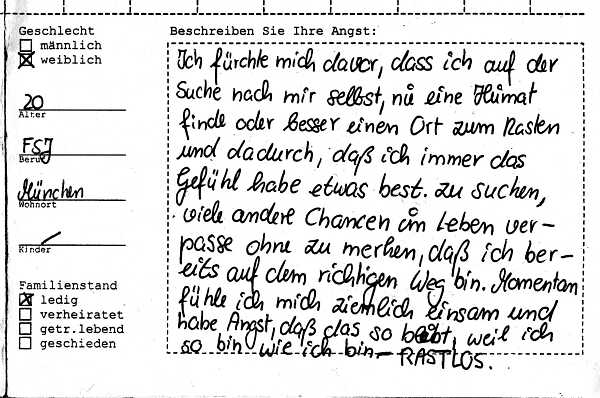 Geschlecht
männlich
weiblich
20
Alter
FSJ
Beruf
München
Wohnort
Kinder
Familienstand
ledig
verheiratet
getr.lebend
geschieden
Beschreiben Sie Ihre Angst:
Ich fürchte mich davor, dass ich auf der
Suche nach mir selbst, nie eine Heimat
finde oder besser einen Ort zum Rasten
und dadurch, daß ich immer das
Gefühl habe etwas best. zu suchen,
viele andere Chancen im Leben ver-
passe ohne zu merken, daß ich ber-
eits auf dem richtigen Weg bin. Momentan
fühle ich mich ziemlich einsam und
habe Angst, daß das so bleibt, weil ich
so bin wie ich bin – RASTLOS.